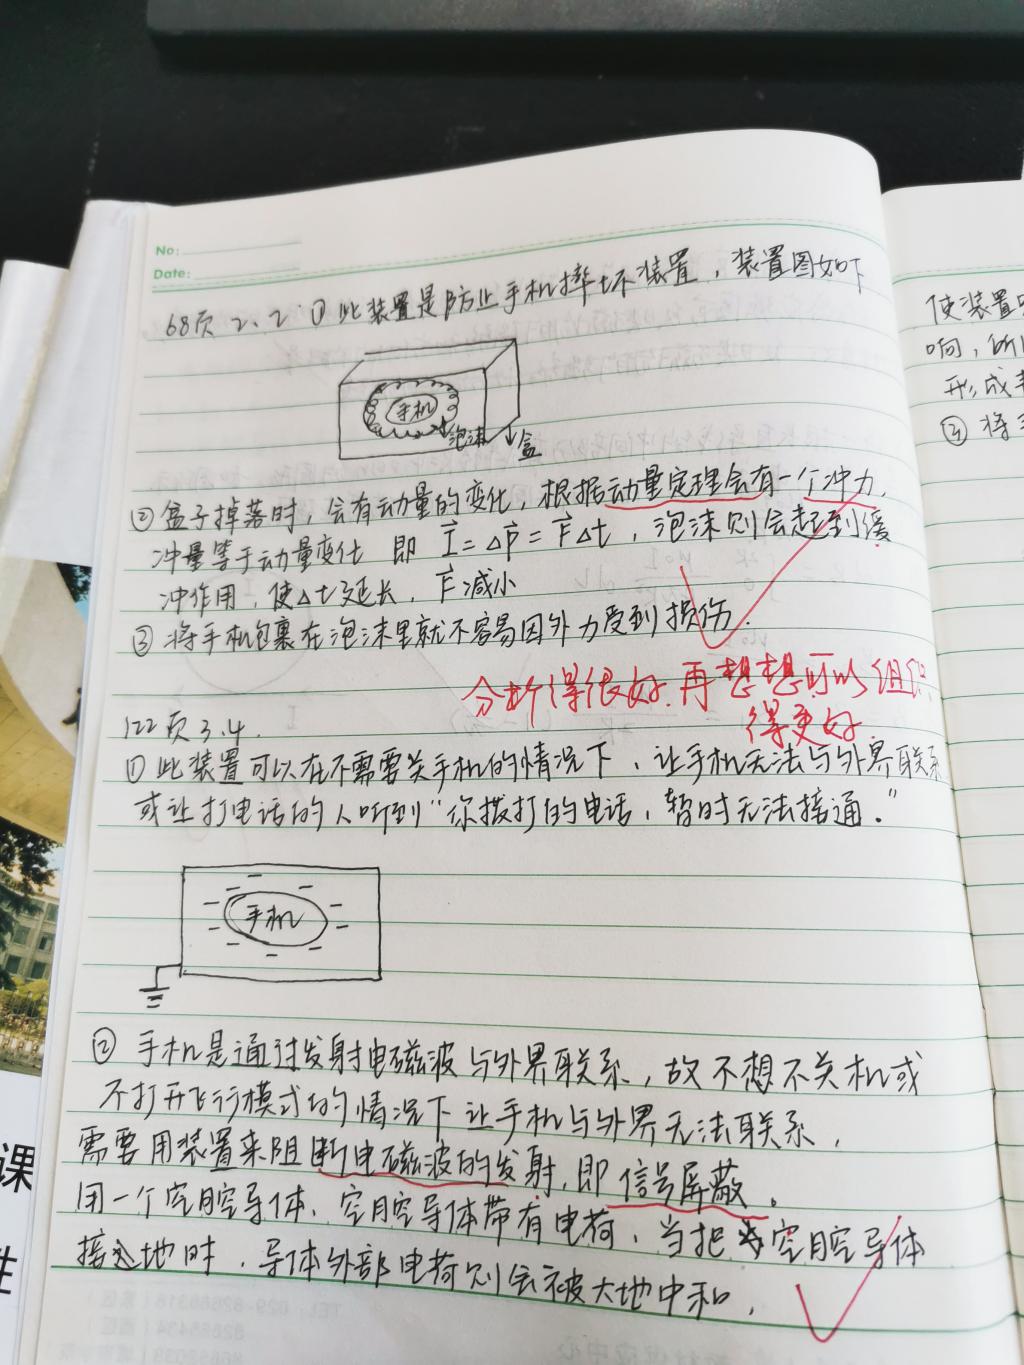 No:
Date:
68页 2、2 ①此装置是防止手机摔坏装置，装置图如下
手机
泡沫
盒
②盒子掉落时，会有动量的变化，根据动量定理会有一个冲力，
冲量等于动量变化 即 I⃗=Δp⃗=F⃗Δt，泡沫则会起到缓
冲作用，使Δt延长，F⃗减小
③将手机包裹在泡沫里就不容易因外力受到损伤.
分析得很好.再想想可以组织
得更好
122页3.4.
①此装置可以在不需要关手机的情况下，让手机无法与外界联系
或让打电话的人听到“你拨打的电话，暂时无法接通.”
手机
②手机是通过发射电磁波与外界联系，故不想不关机或
不打开飞行模式的情况下让手机与外界无法联系，
需要用装置来阻断电磁波的发射，即信号屏蔽。
用一个空腔导体，空腔导体带有电荷，当把空腔导体
接地时，导体外部电荷则会被大地中和，
使装置
响，所
形成
③将
课
性